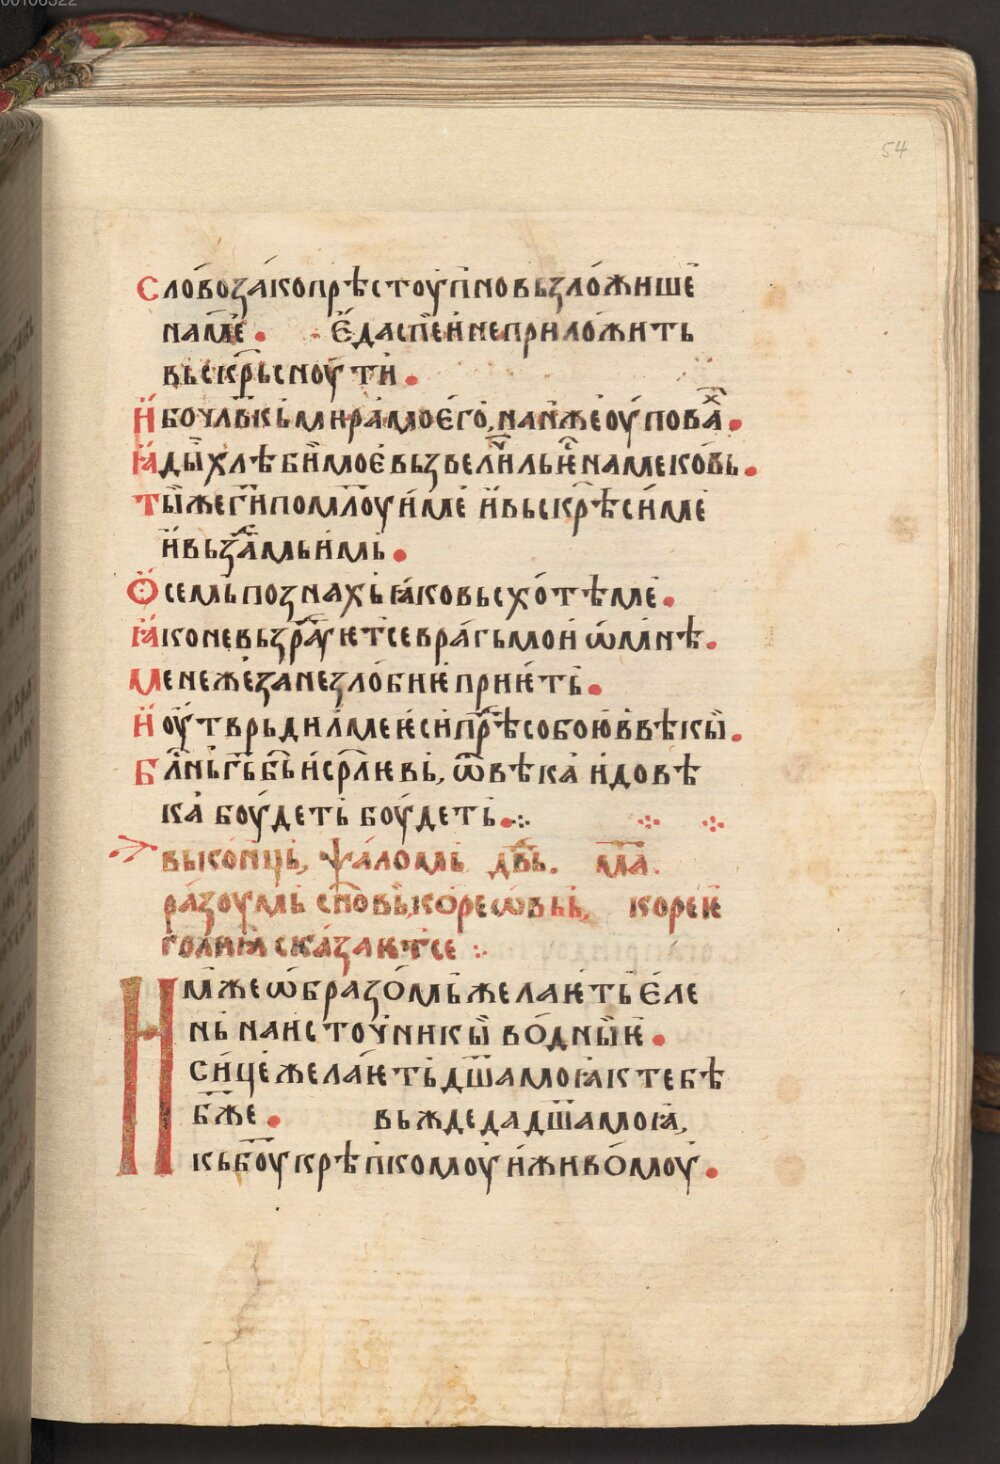 00108322
54
Слово́ за́конрѣстоу́пⷩ҇но вьзло́жише
на мѐ. Е҆да спе́и не прило́жить
вьскрⷭ҇ьсноу́ти.
И҆бо ч҃лвкь мира моѥго̀, на нѥ́же оу҆поваⷯ.
Ꙗ҆ды́и хлѣби мое҆ вьзвели́чиль ѥⷭ҇ на мѐ ковь.
Ты́ же г҃и помлⷭ҇оуи мѐ и҆ вьскрѣ́си мѐ
и҆ вьзда́мь имь.
Ѻ҆ семь познахь ꙗ҆ко вьсхо́тѣ мѐ.
Ꙗ҆ко не вьзраⷣуѥтсе вра́гь мои ѡ҆ мнѣ̀.
Мене же за незло́биѥ приѥ́ть.
И҆ оу҆тврьди́л ме ѥси прѣⷣ собою в вѣкы.
Блⷭ҇нь г҃ь б҃ь и҆срⷭ҇лѥвь, ѿ вѣка и҆ до вѣ
ка̀ боу́деть боу́деть.
вь коньць, ѱа́ломь дв҃ь. м҃а.
ра́зоумь сн҃овь корео́вьь, кореѥ
голима ска́заѥтсе
Имже ѡ҆бразо́мь желаѥ́ть ѥ҆ле
нь на и҆сточ́никы во́дныѥ.
си́це жела́ѥть дш҃а моꙗ к тебѣ
б҃же. вьжде́да дш҃а моꙗ,
кь б҃оу крѣпкомоу и҆ живо́моу.